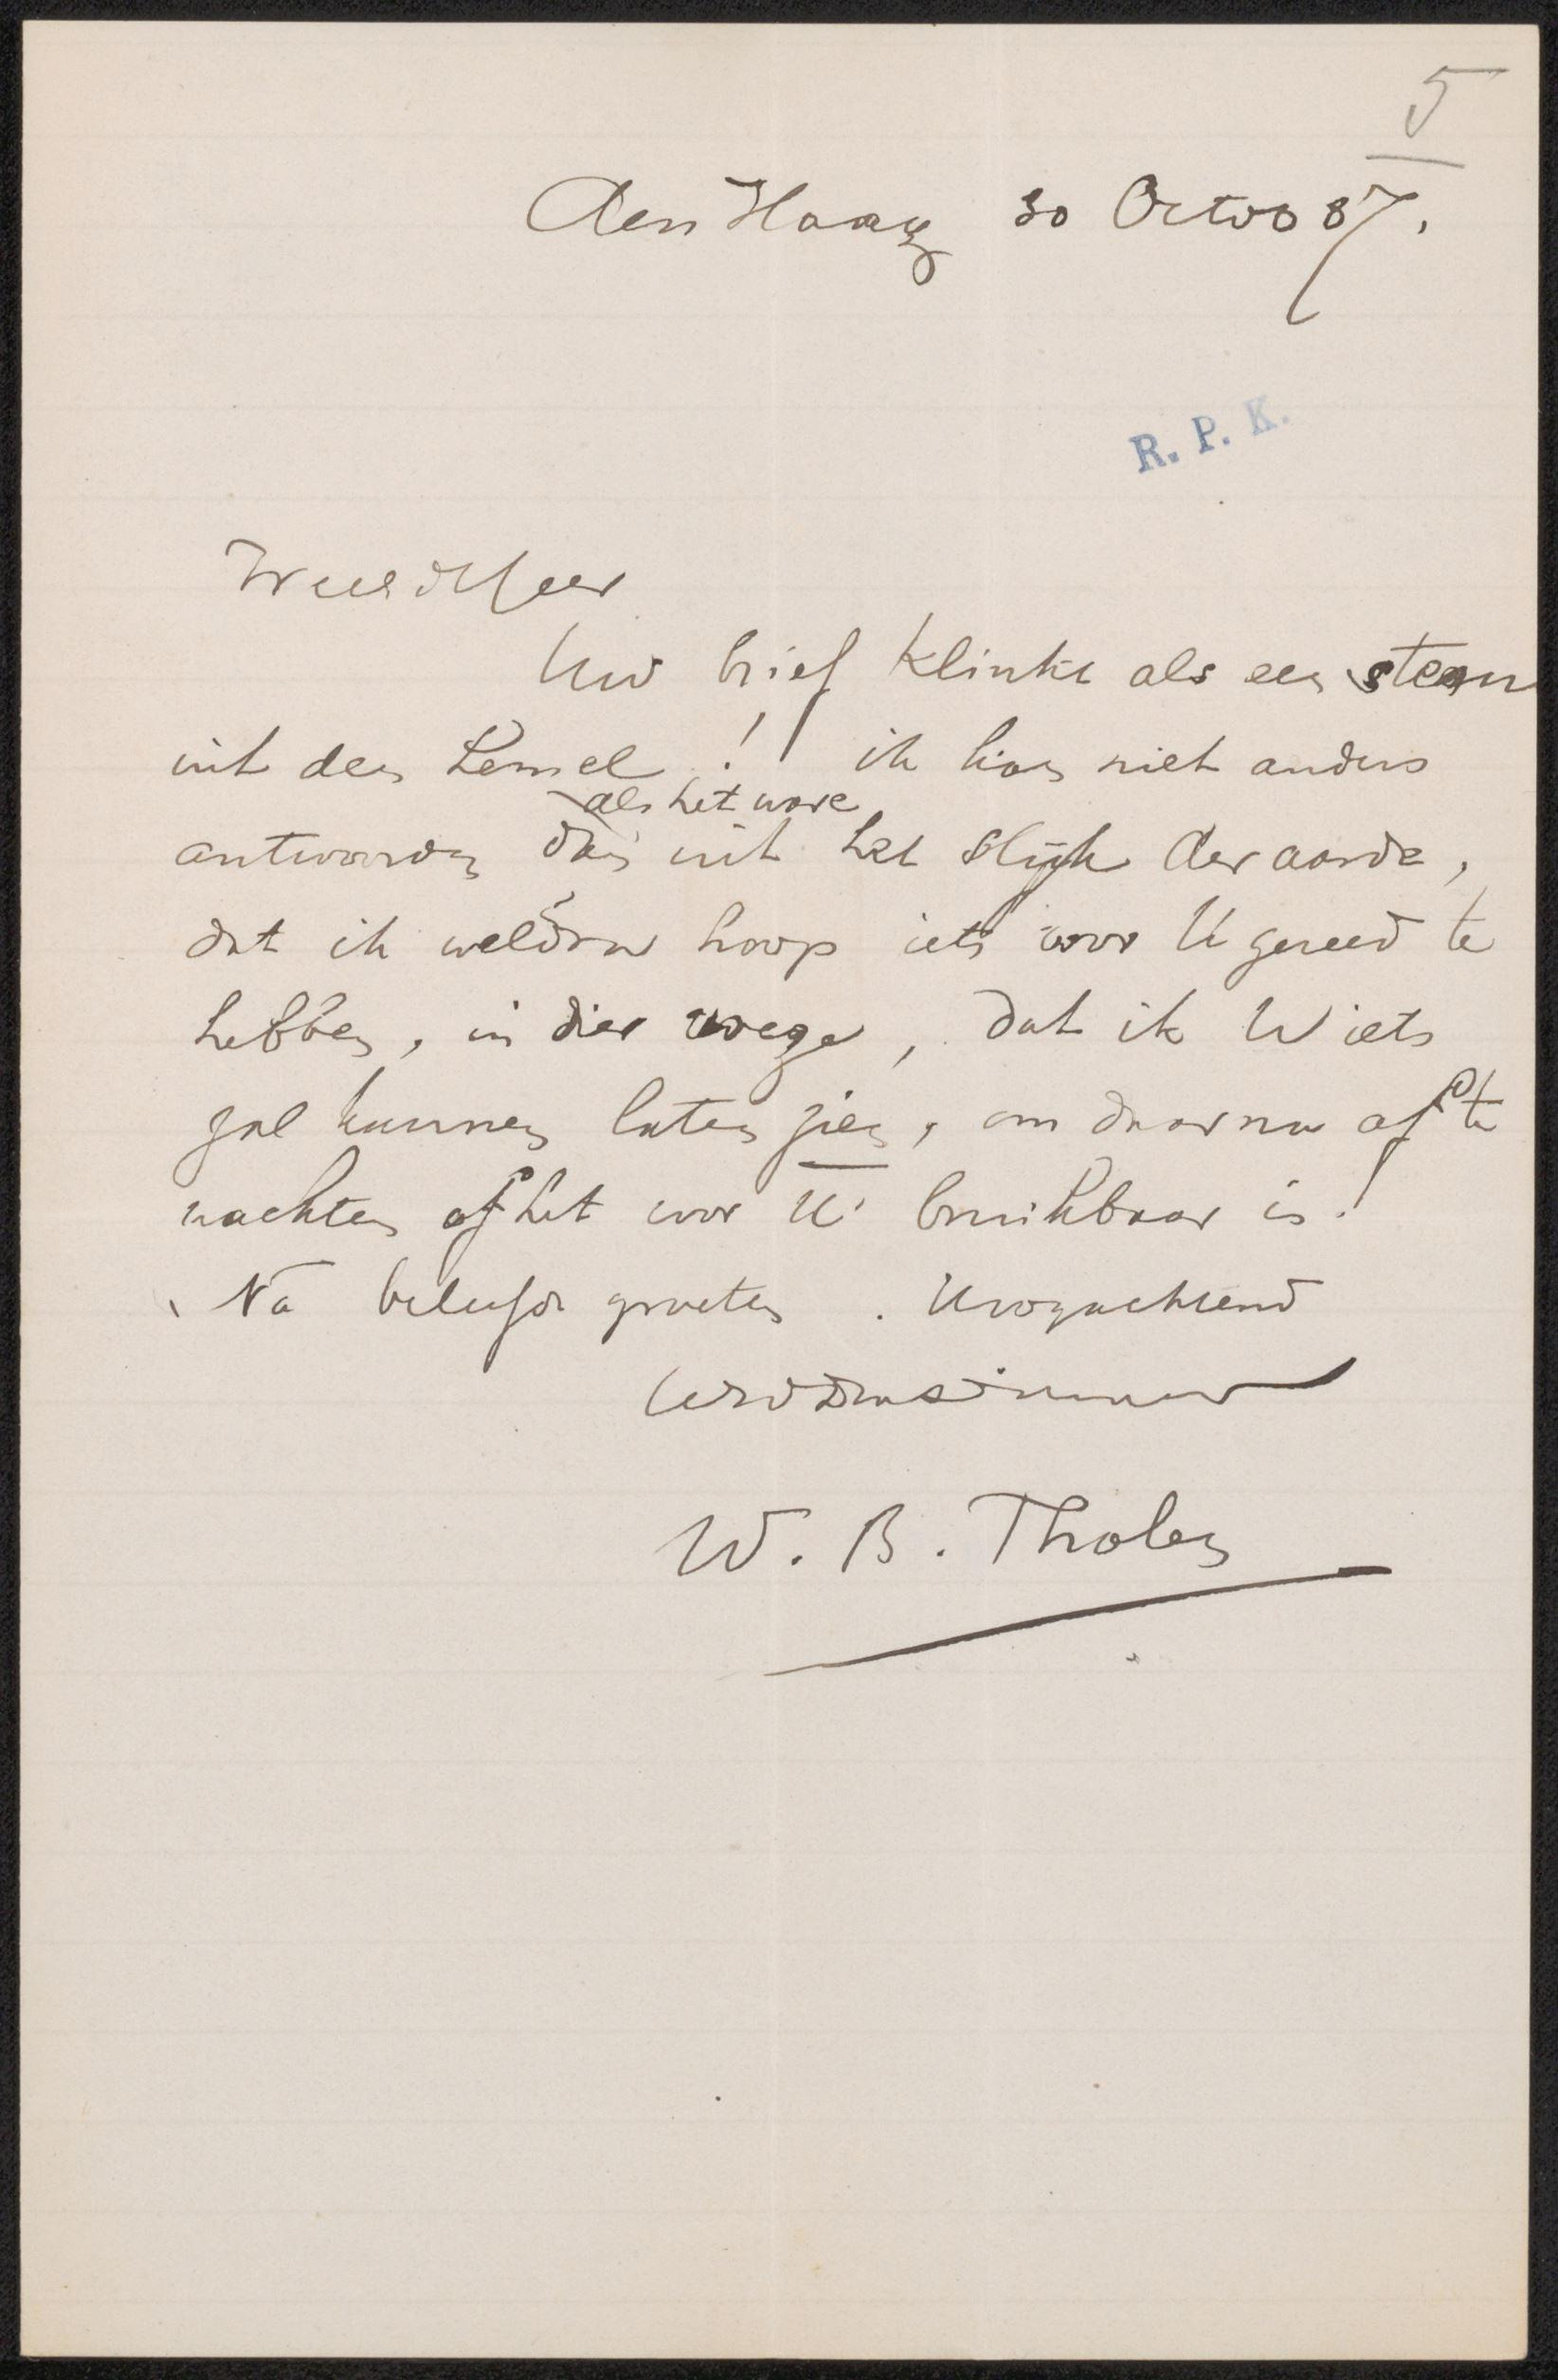 5
Den Haag 30 Octob 87.
R. P. K.
Waarde Heer
Uw brief klinkt als een stem
uit den hemel! ik kan niet anders
als het ware
antwoorden dan uit het slijk der aarde,
dat ik weldra hoop iets voor U gereed te
hebben, in dier voege, dat ik U iets
zal kunnen laten zien, om daarna af te
wachten of het voor U bruikbaar is!
Na beleefde groeten. Hoogachtend
Uw dienstw
W. B. Tholen